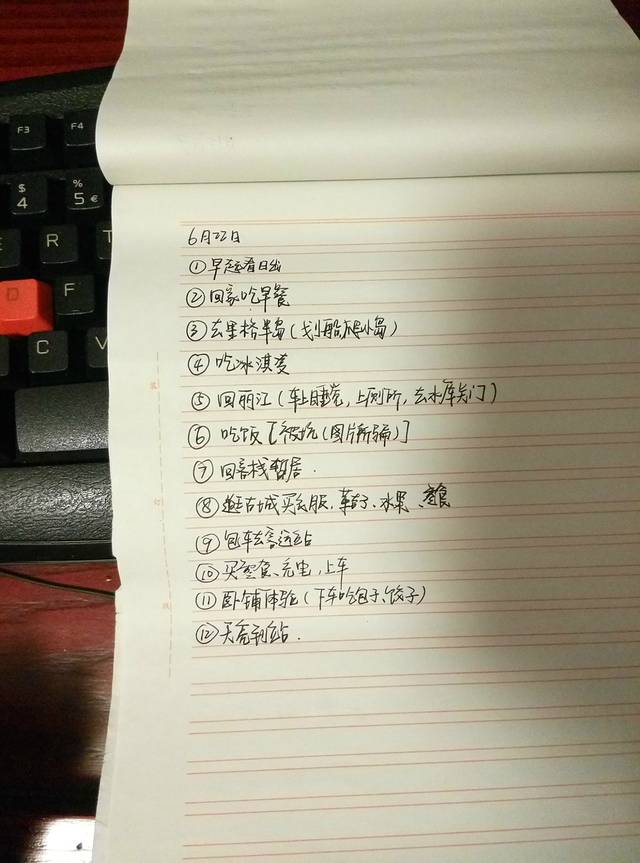 F3
F4
$
4
%
5
€
E
R
T
D
F
C
V
6月22日
①早起看日出
②回家吃早餐
③去里格半岛(划船爬小岛)
④吃冰淇凌
⑤回丽江(车上睡觉,上厕所,去水库关门)
⑥吃饭[被坑(图片所骗)]
⑦回客栈暂居.
⑧逛古城买衣服,鞋子、水果、
⑨包车去客运站
⑩买零食、充电、上车
⑪卧铺体验(下车吃包子、饺子)
⑫天亮到站.